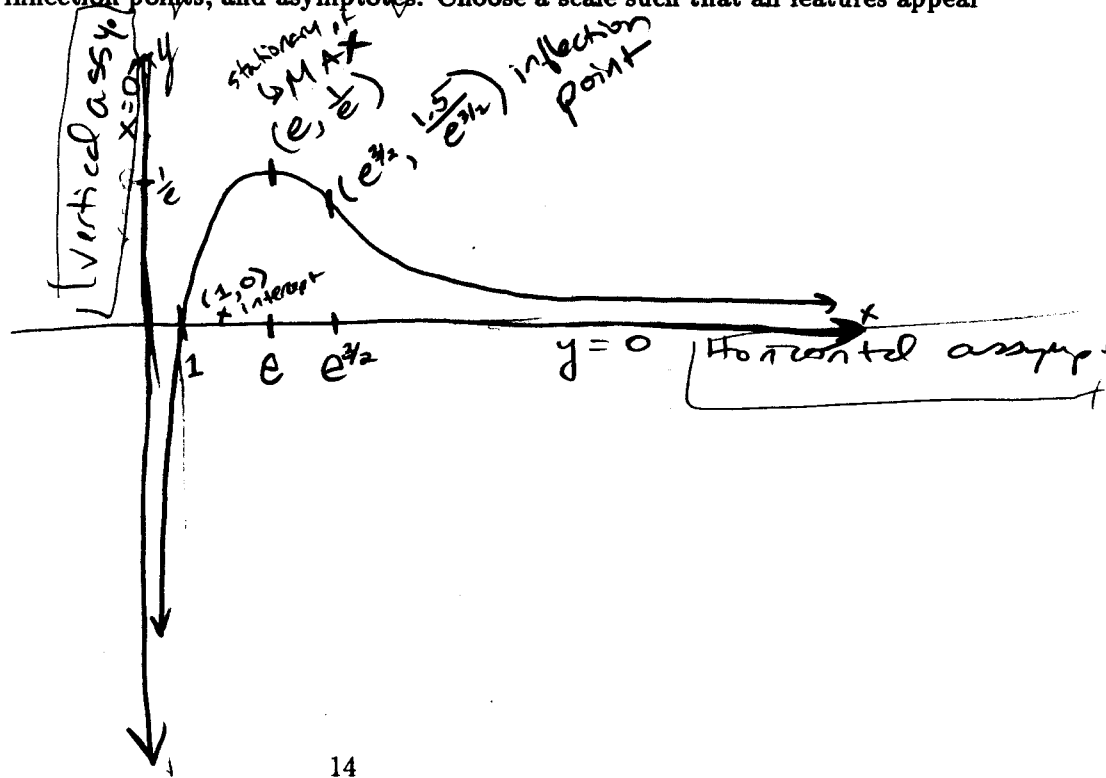 inflection points, and asymptotes. Choose a scale such that all features appear
Vertical assy.
x=0
y
stationary pt
↳ MAX
(e, 1/e)
(e^{3/2}, 1.5/e^{3/2}) inflection
point
1/e
(1,0)
x intercept
1
e
e^{3/2}
y = 0
x
Horizontal assymp.
14